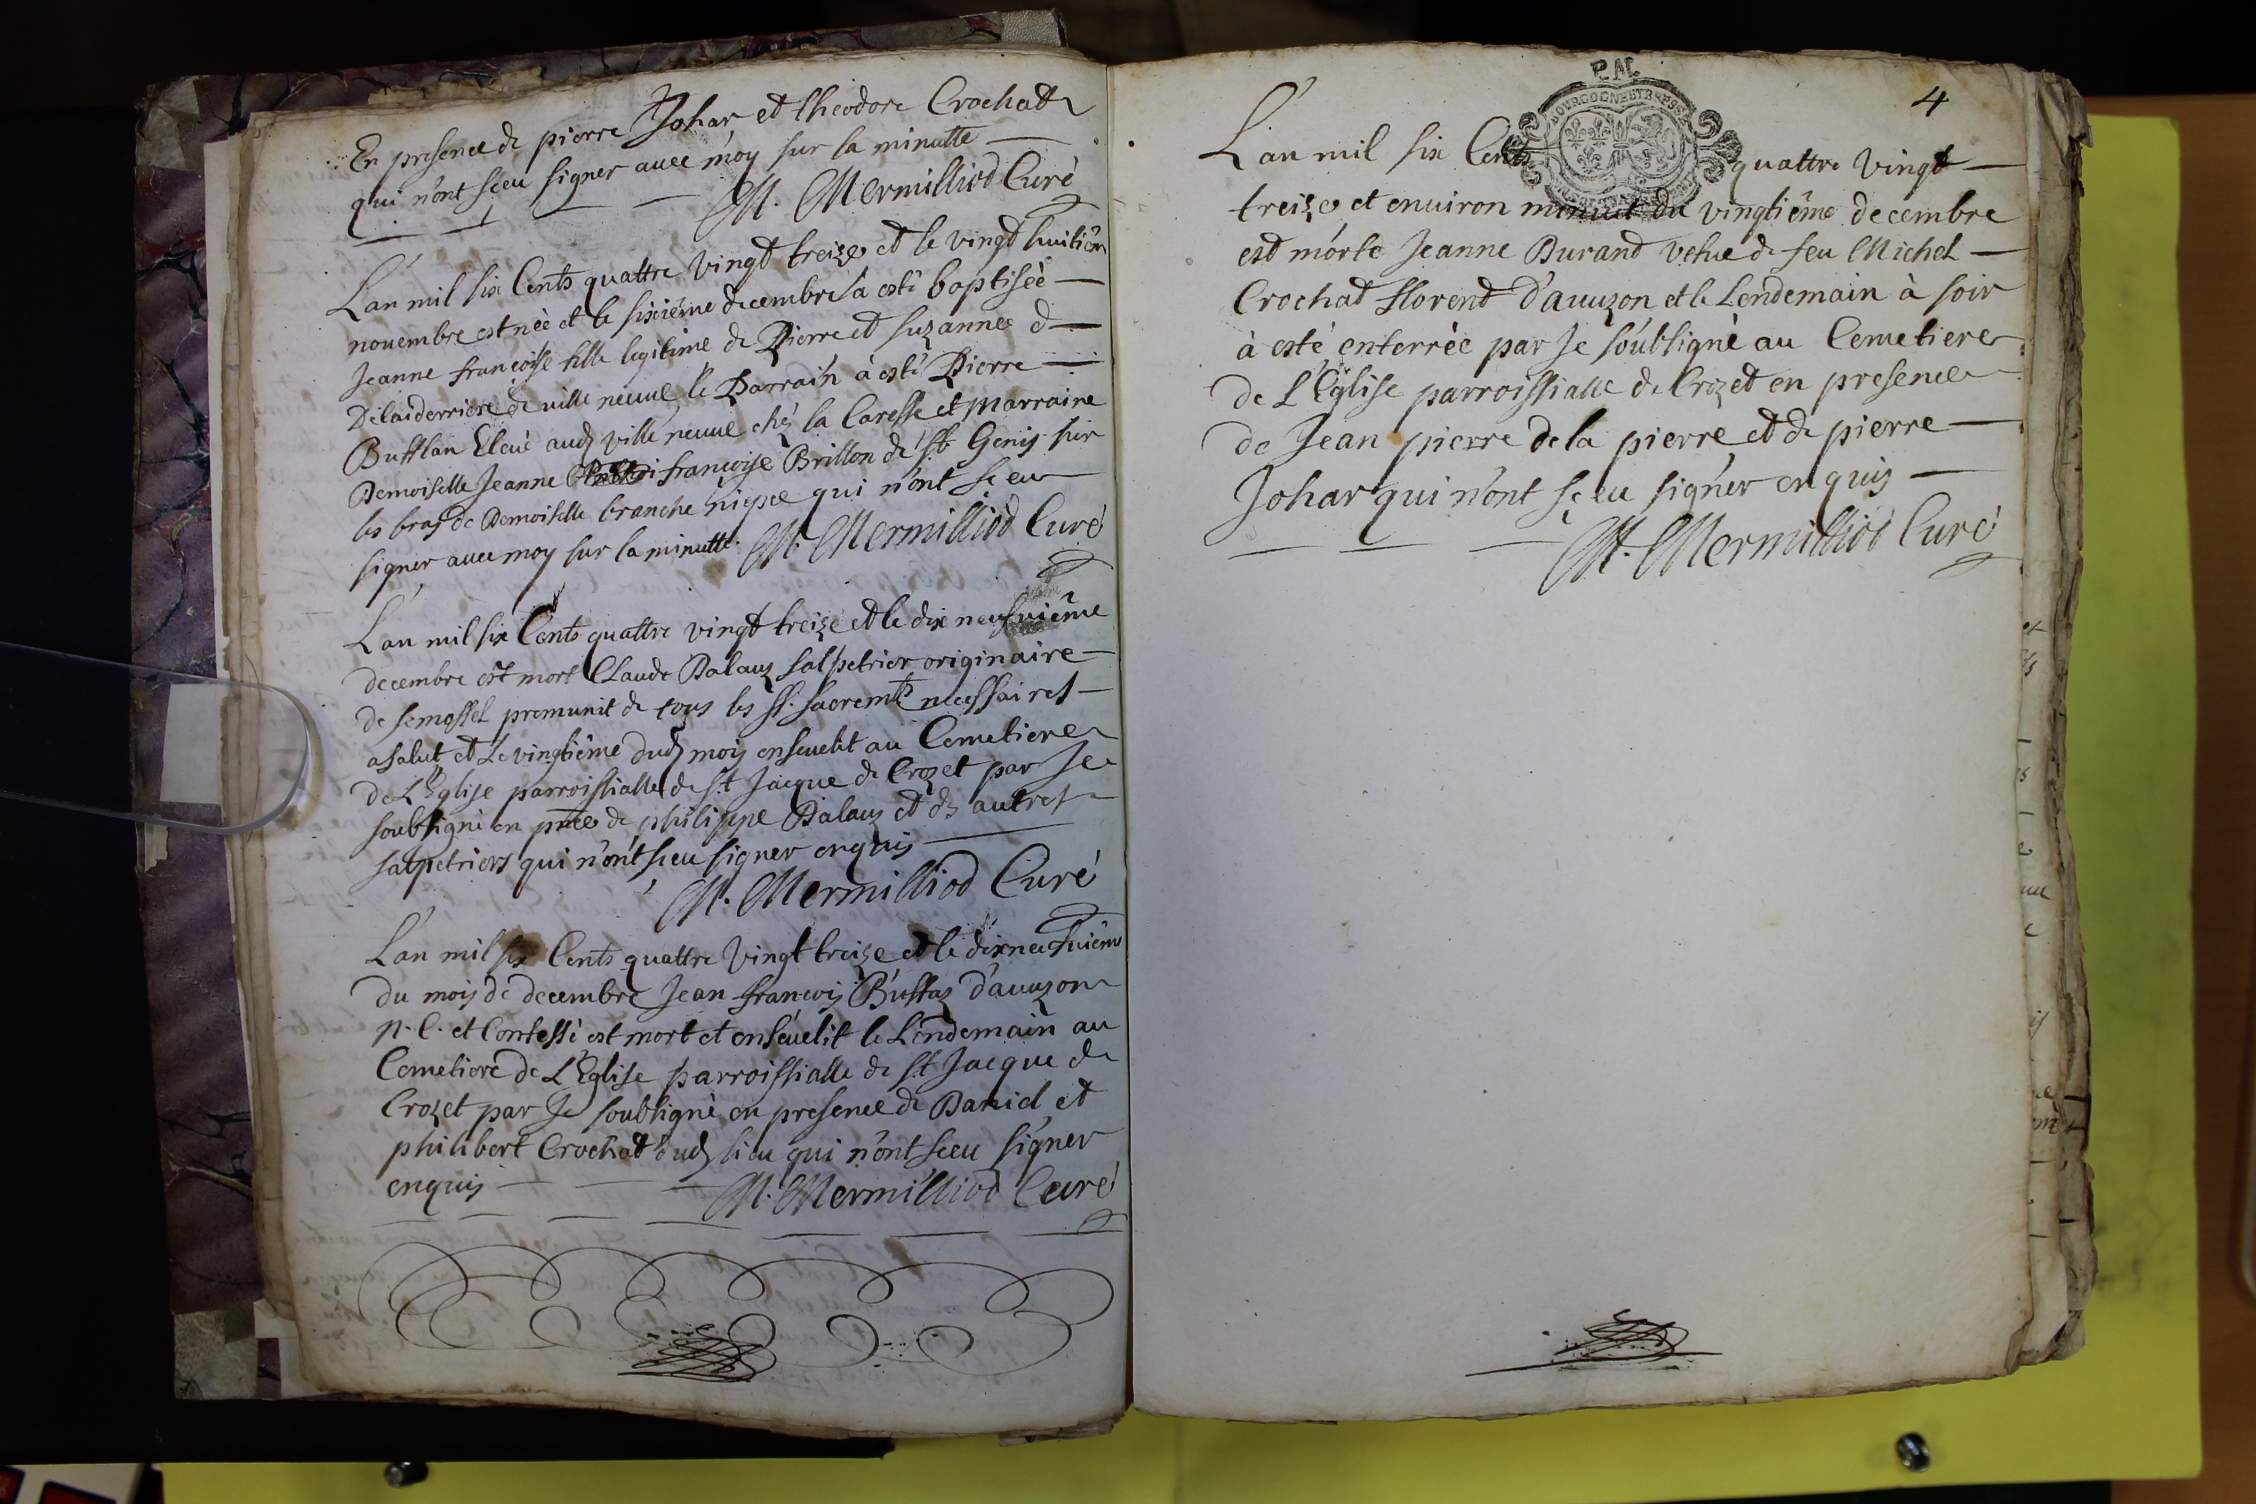 En presence de pierre Johar et theodore Crochat
qui n'ont sceu signer avec moy sur la minutte
M. Mermilliod Curé
L'an mil six Cents quattre vingt treize et le vingt huitiem
novembre est née et le sixiéme decembre a esté baptisèe
Jeanne françoise fille legitime de Pierre et suzanne d
Delaiderriere de ville neuve le Parrain à esté Pierre
Bufflan Elevé aud ville neuve chéz la Caresse et marraine
Demoiselle Jeanne françoise Brillon de st Genis sur
les bras de Demoiselle branche niepce qui n'ont sceu
signer avec moy sur la minutte. M. Mermilliod Curé
L'an mil six Cents quattre vingt treize et le dix neufviême
decembre est mort Claude Dalauz salpetrier originaire
de semossel premunit de tous les ss. sacremts necessaires
a salut et Le vingtiême dud mois ensevelit au Cemetiere
de L'Eglise parroissialle de st Jacque de Crozet par Je
soubsigné en pnce de philippe Dalauz et ds autres
salpetriers qui n'ont sceu signer enquis
M. Mermilliod Curé
L'an mil six Cents quattre vingt treize et le dixneufviême
du mois de decembre Jean françois Buffaz d'avuzon
p. C. et Confessé est mort et ensévelit le Lendemain au
Cemetiere de L'Eglise parroissialle de st Jacque de
Crozet par Je soubsigné en presence de Daniel et
philibert Crochat dud lieu qui n'ont sceu signer
enquis M. Mermilliod Curé
4
P.N.
BOURGOGNE ET BRESSE
L'an mil six Cents quattre vingt
treize et environ minuit du vingtiême decembre
est morte Jeanne Durand vefue de feu Michel
Crochat florent d'avuzon et le Lendemain à soir
à esté enterrée par Je soubsigné au Cemetiere
de L'Eglise parroissialle de Crozet en presence
de Jean pierre de la pierre et de pierre
Johar qui n'ont sçeu signer enquis
M. Mermilliod Curé